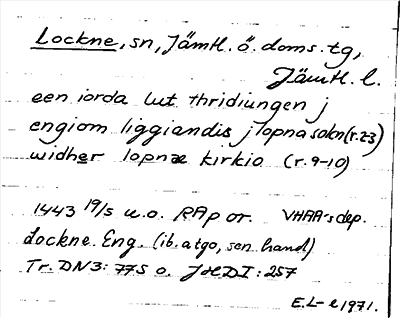 Lockne, sn, Jämtl. ö. doms. tg,
Jämtl. l.
een iorda lut thridiungen j
engiom liggiandis j lopna sokn (r. 2-3)
widher lopnæ kirkio (r. 9-10)
1443 19/5 u.o. RAp or. VHAA's dep.
Lockne. Eng. (ib. a tgo, sen. hand)
Tr. DN3: 775 o. JHDI: 257
E.L-l 1971.